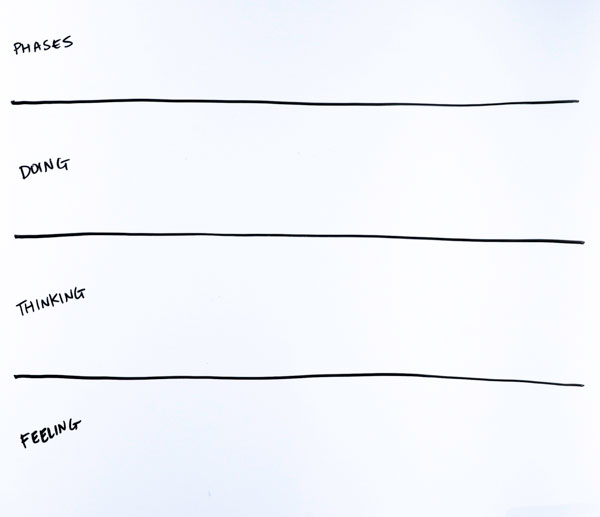 PHASES
DOING
THINKING
FEELING